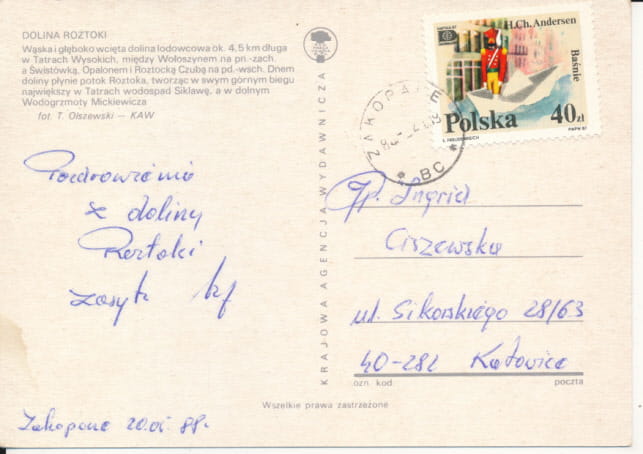 DOLINA ROZTOKI
Wąska i głęboko wcięta dolina lodowcowa ok. 4,5 km długa
w Tatrach Wysokich, między Wołoszynem na pn.-zach.
a Świstówką, Opalonem i Roztocką Czubą na pd.-wsch. Dnem
doliny płynie potok Roztoka, tworząc w swym górnym biegu
największy w Tatrach wodospad Siklawę, a w dolnym
Wodogrzmoty Mickiewicza
fot. T. Olszewski — KAW
Pozdrowienia
z doliny
Roztoki
Zakopane 20.
88r.
KRAJOWA AGENCJA WYDAWNICZA
H.Ch. Andersen
Baśnie
Polska 40zł
PWPW 87
ZAKOPANE
BC
Ingrid
Ciszewska
ul. Sikorskiego 28/63
40-282 Katowice
ozn. kod poczta
Wszelkie prawa zastrzeżone